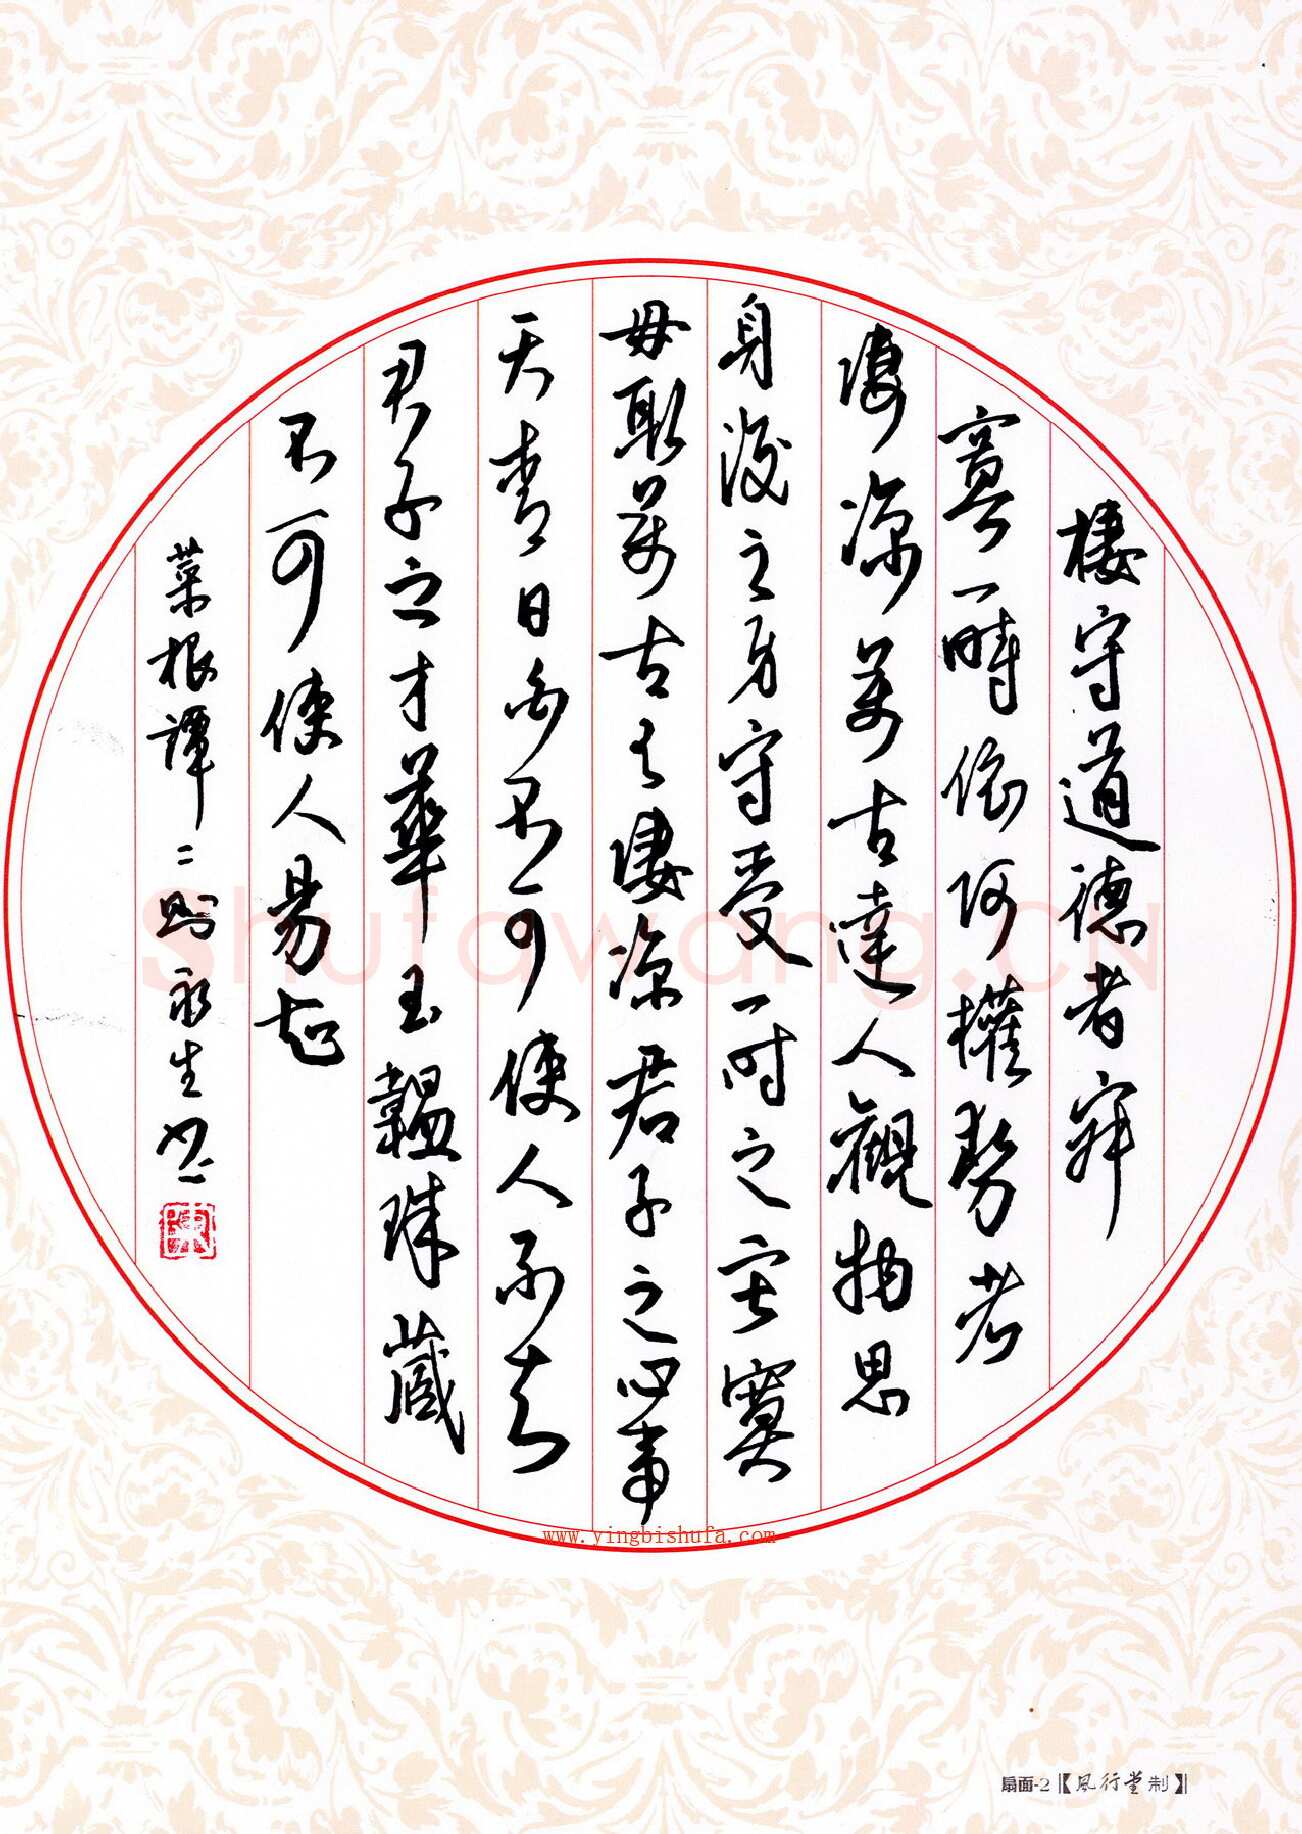 棲守道德者寂
寞一時依阿權勢者
淒涼萬古達人觀物思
身後之身守受一時之寂寞
毋取萬古之淒涼君子之心事
天青日白不可使人不知
君子之才華玉韞珠藏
不可使人易知
菜根譚二則 永生書
陳
Shufawang.CN
www.yingbishufa.com
扇面-2【風行堂制】